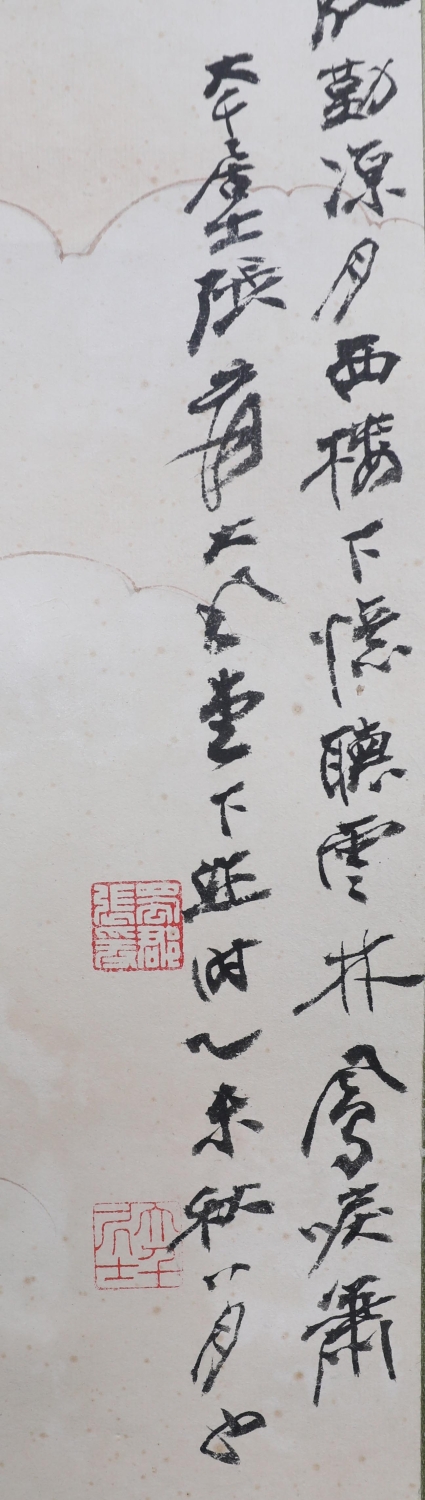 勤凉月西楼下憶聽雲林鳳唳簫
大千居士張爰大風堂下並題時乙未秋八月也
蜀郡張爰
大千居士